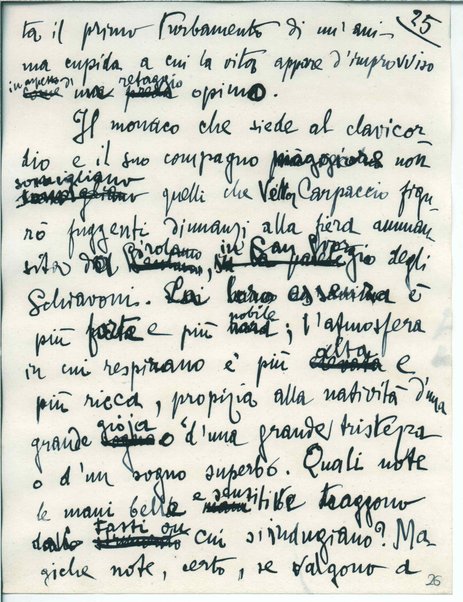 25
ta il primo turbamento di un'ani-
ma cupida a cui la vita appare d'improvviso
in aspetto di retaggio
una opimo.
Il monaco che siede al clavicor
dio e il suo compagno non
somigliano quelli che Vettor Carpaccio figu
rò fuggenti dinnanzi alla fiera amman
sita da Girolamo, in San Giorgio degli
Schiavoni. La loro essenza è
più forte e più nobile; l'atmosfera
in cui respirano è più alta e
più ricca, propizia alla natività d'una
grande gioja o d'una grande tristezza
o d'un sogno superbo. Quali note
le mani belle e sensitive traggono
dai tasti ove cui s'indugiano? Ma
giche note, certo, se valgono a
26